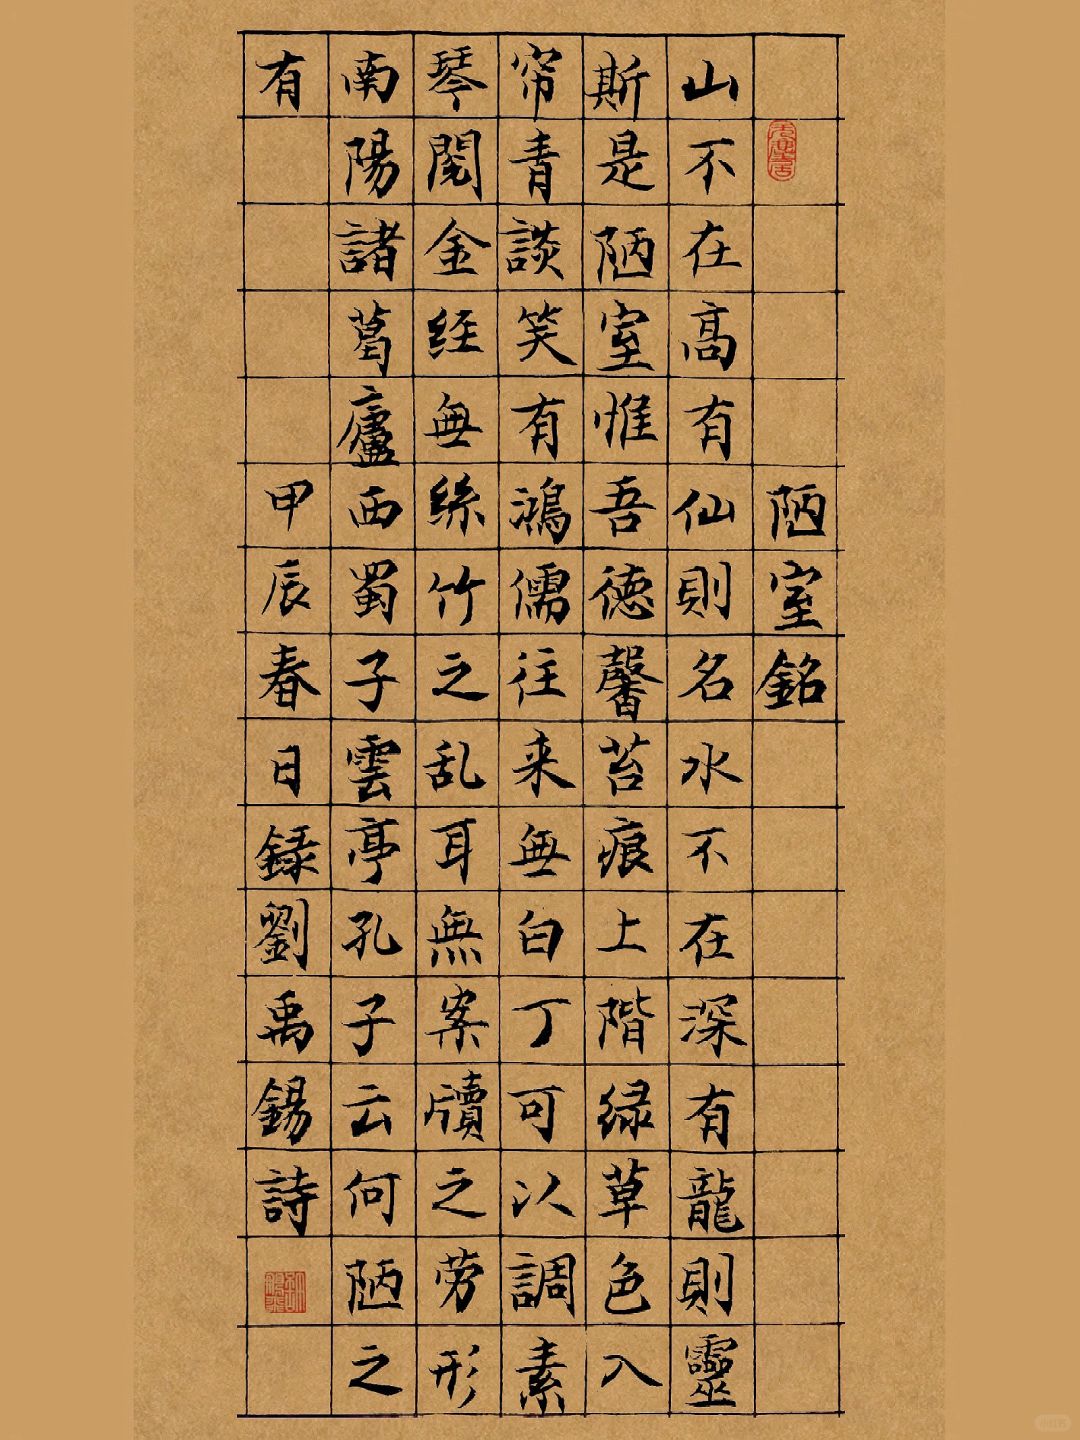 陋室銘
山不在高有仙則名水不在深有龍則靈
斯是陋室惟吾德馨苔痕上階緑草色入
帘青談笑有鴻儒往来無白丁可以調素
琴閲金経無絲竹之乱耳無案牘之劳形
南陽諸葛廬西蜀子雲亭孔子云何陋之
有
甲辰春日録劉禹錫詩